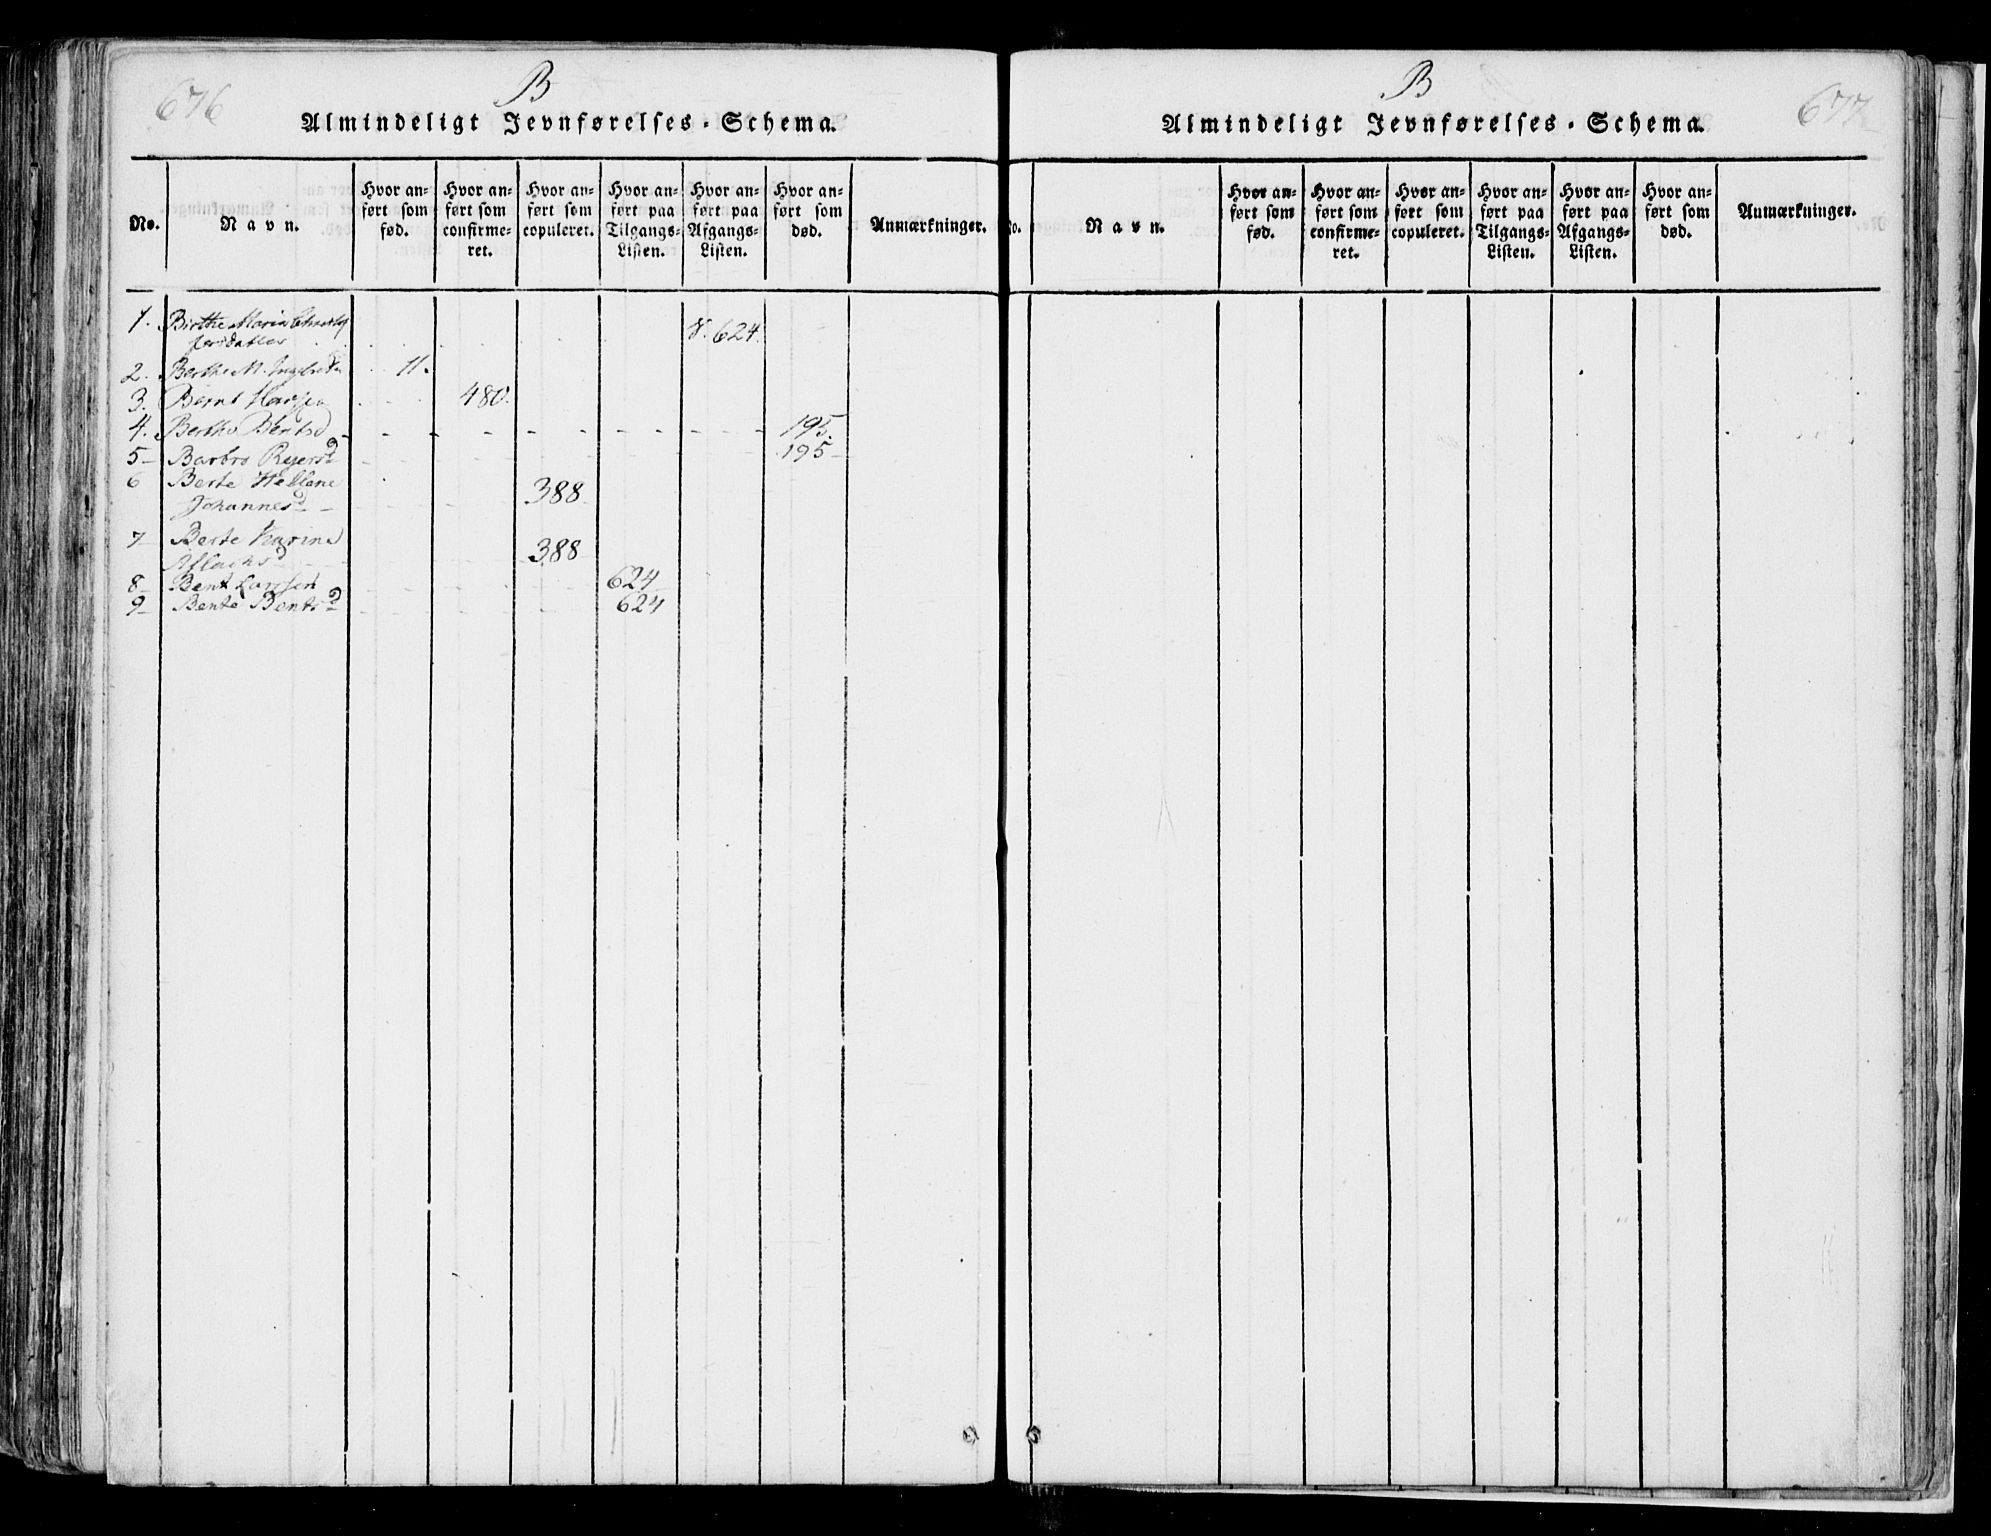 676
B
Almindeligt Jevnførelses-Schema.
No.
Navn.
Hvor an-
ført som
fød.
Hvor an-
ført som
confirme-
ret.
Hvor an-
ført som
copuleret.
Hvor an-
ført paa
Tilgangs-
Listen.
Hvor an-
ført paa
Afgangs-
Listen.
Hvor an-
ført som
død.
Anmærkninger.
1. Birthe Maria
624.
2. Berthe M. 11.
3. Bernt Hansen 480.
4. Berthe Bentsd 195.
5 Barbro Reiersd 195
6 Berte Hellene
Johannesd 388
7 Berte Karine
388
8 Bent Larssen 624
9 Bente Bentsd 624
B
677
Almindeligt Jevnførelses-Schema.
No.
Navn.
Hvor an-
ført som
fød.
Hvor an-
ført som
confirme-
ret.
Hvor an-
ført som
copuleret.
Hvor an-
ført paa
Tilgangs-
Listen.
Hvor an-
ført paa
Afgangs-
Listen.
Hvor an-
ført som
død.
Anmærkninger.